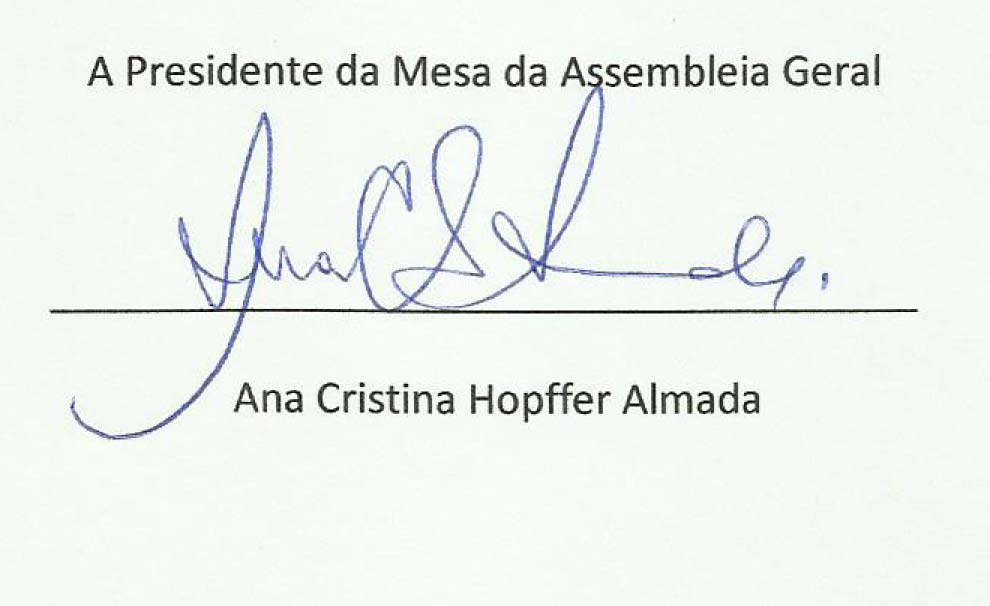 A Presidente da Mesa da Assembleia Geral
Ana Cristina Hopffer Almada